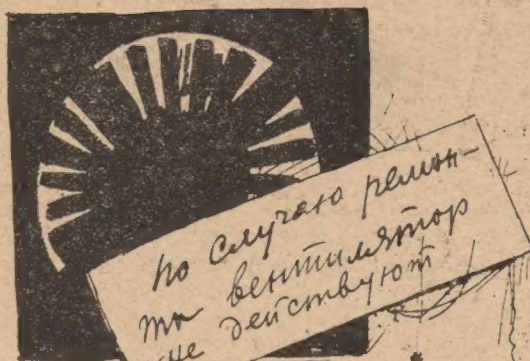 по случаю ремон-
та вентилятор
не действуют